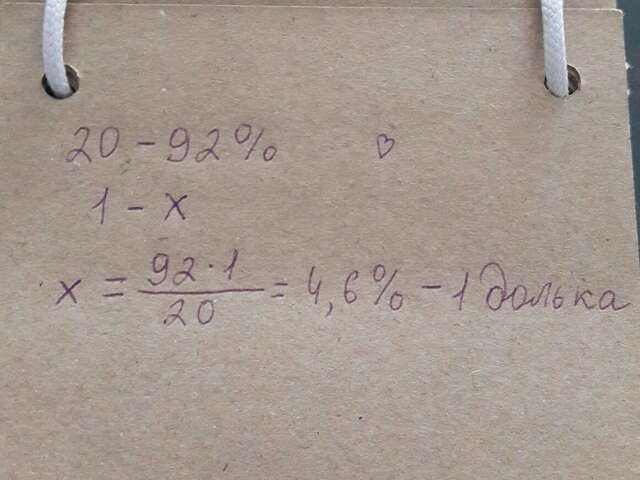 20 - 92% ♡
1 - x
x = 92·1/20 = 4,6% - 1 долька